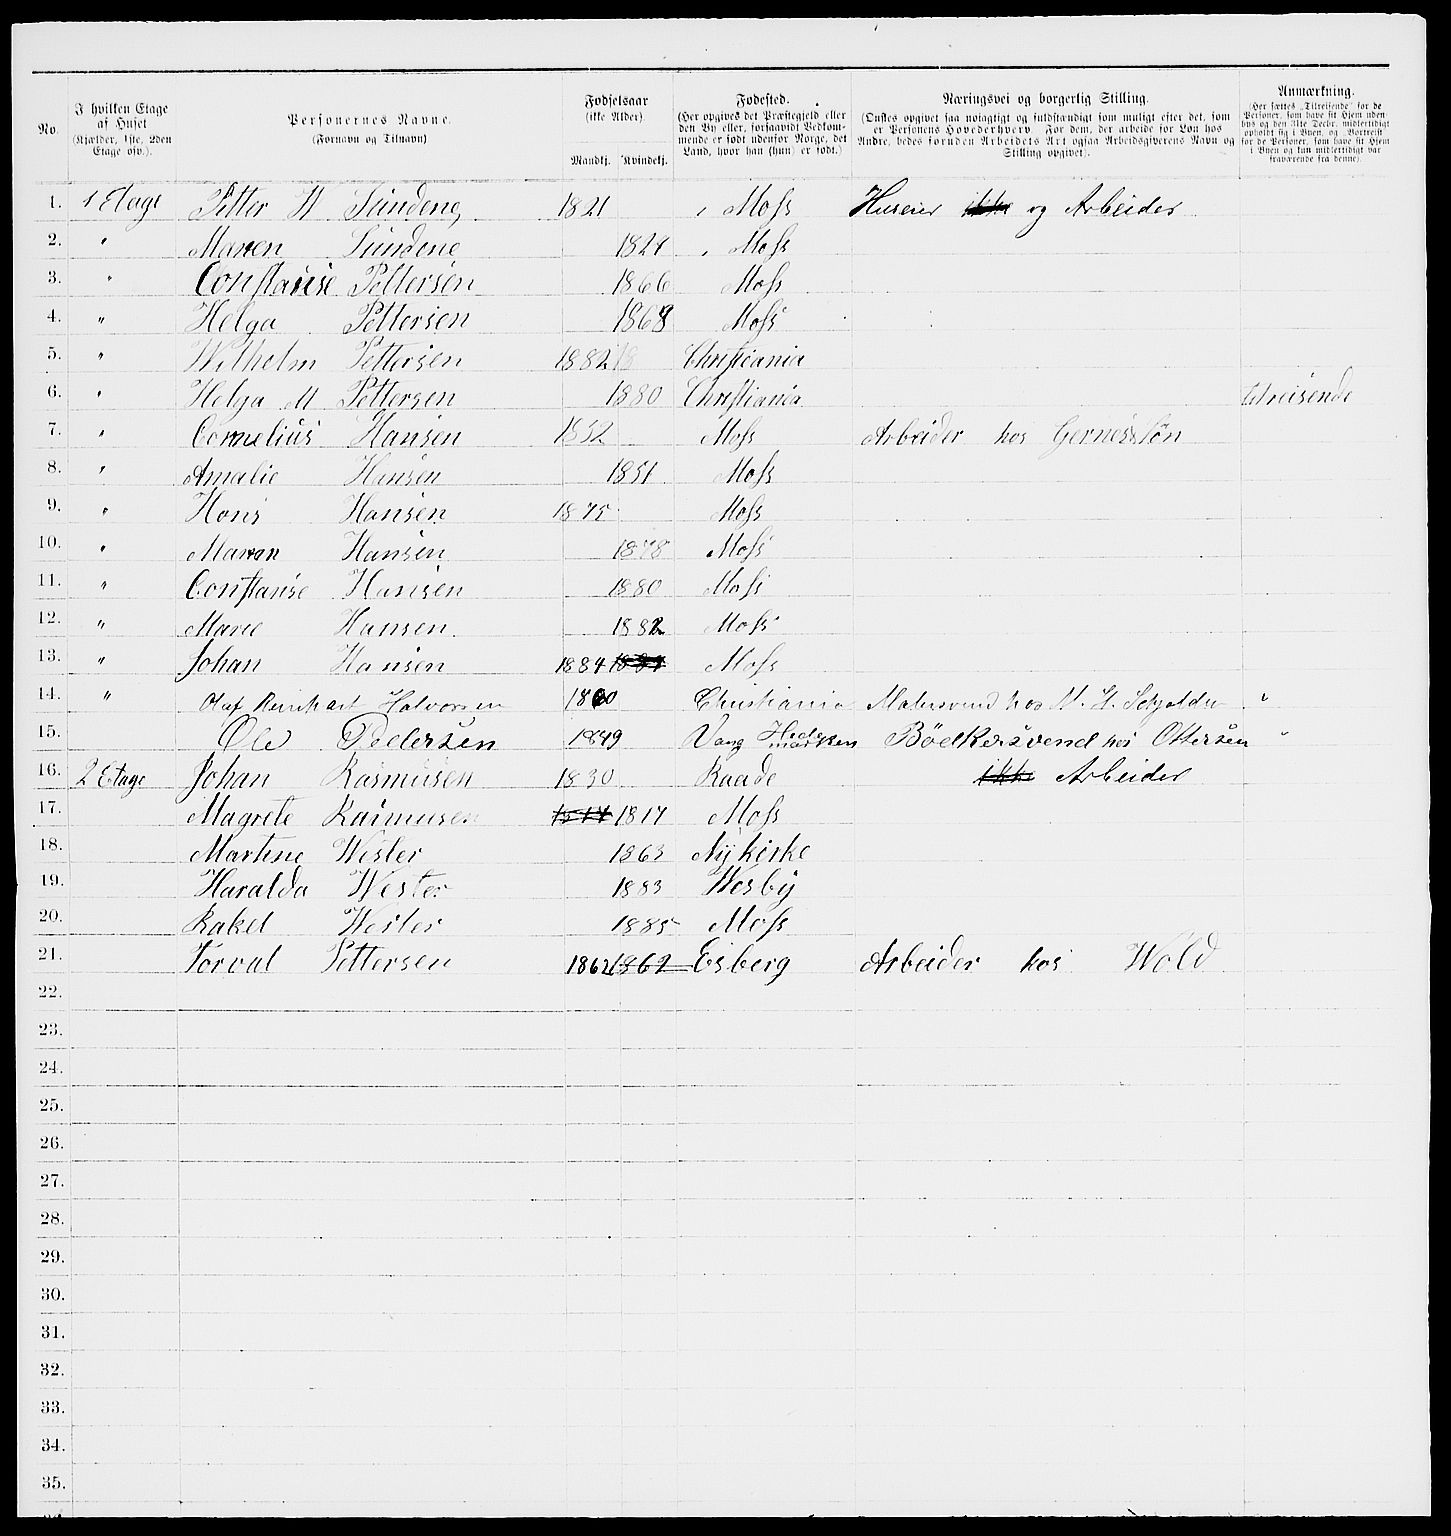 No.
I hvilken Etage af Huset (Kjælder, 1ste, 2den Etage osv.).
Personernes Navne. (Fornavn og Tilnavn)
Fødselsaar (ikke Alder). Mandkj. Kvindekj.
Fødested. (Her opgives det Præstegjeld eller den By eller, forsaavidt Vedkommende er født udenfor Norge, det Land, hvor han (hun) er født.)
Næringsvei og borgerlig Stilling. (Ønskes opgivet saa nøiagtigt og fuldstændigt som muligt efter det, som er Personens Hovederhverv. For dem, der arbeide for Løn hos Andre, bedes foruden Arbeidets Art ogsaa Arbeidsgiverens Navn og Stilling opgivet).
Anmærkning. (Her sættes „Tilreisende" for de Personer, som have sit Hjem udenbys og den 31te Decbr. midlertidigt opholdt sig i Byen, og „Bortreist" for de Personer, som have sit Hjem i Byen og kun midlertidigt var fraværende fra denne).
1. 1 Etage Petter H Sundene 1821 Moss Huseier ikke og Arbeider
2. " Maren Sundene 1824 Moss
3. " Constansise Pettersen 1866 Moss
4. " Helga Pettersen 1868 Moss
5. " Wilhelm Pettersen 1882 18 Christiania
6. " Helga M Pettersen 1880 Christiania tilreisende
7. " Cornelius Hansen 1852 Moss Arbeider hos
8. " Amalie Hansen 1851 Moss
9. " Hans Hansen 1875 Moss
10. " Maren Hansen 1878 Moss
11. " Constanse Hansen 1880 Moss
12. " Marie Hansen 1882 Moss
13. " Johan Hansen 1884 1884 Moss
14. " Olaf Reinhart Halvorsen 1860 Christiania Malersvend hos "
15. Ole Pedersen 1849 Vang Hedemarken Bödkersvend hos Ottersen "
16. 2 Etage Johan Rasmusen 1830 Raade ikke Arbeider
17. Magrete Rasmusen 1817 1817 Moss
18. Martine Wester 1863 Nykirke
19. Haralda Wester 1883 Wesby
20. Rakel Wester 1885 Moss
21. Torval Pettersen 1862 1862 Eisberg Arbeider hos Wold
22.
23.
24.
25.
26.
27.
28.
29.
30.
31.
32.
33.
34.
35.